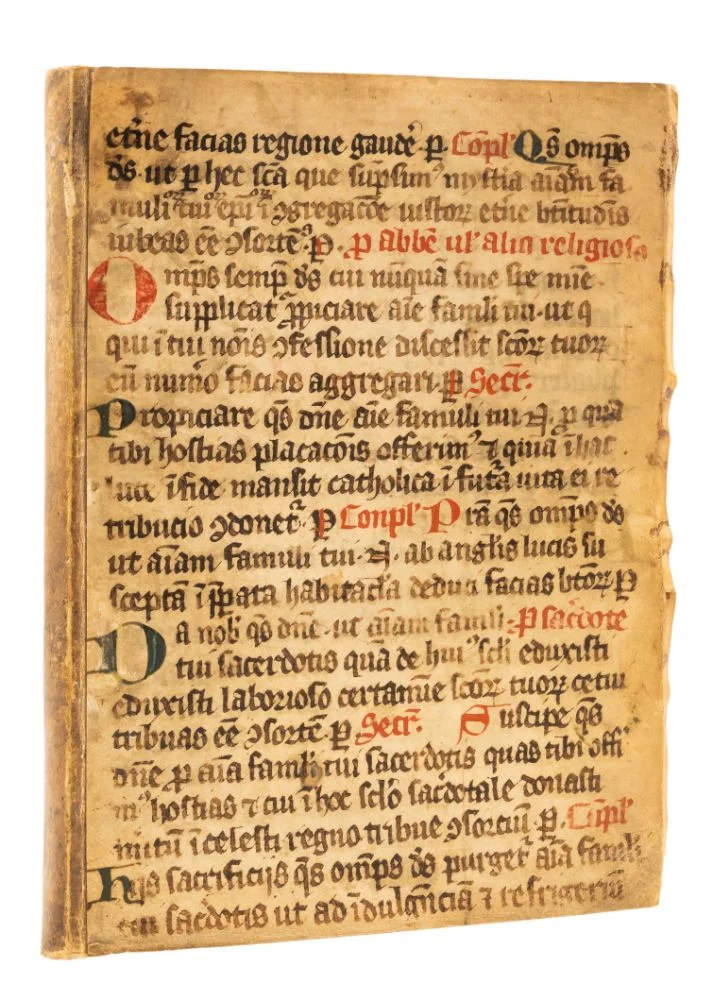 et̄ne facias regione gaudē. ꝑ. Cōpl' Qs̄ omp̄s
ds̄. ut ꝑ hec sc̄a que sūpsim9 mystia aīam fa
muli tui ep̄i ꝯgregacōe iustoꝝ et̄ne btītudīs
iubeas eē ꝯsortē. ꝑ. ꝓ abbē ul' alio religioso
Omp̄s semp̄ ds̄ cui nūquā sine spe mīe
supplicat̄ ꝓpiciare aīe famuli tui. ut q
qui ī tui nōis ꝯfessione discessit scōꝝ tuoꝝ
eū num̄o facias aggregari. ꝑ Secr̄.
Propiciare qs̄ dn̄e aīe famuli tui .N. ꝓ qua
tibi hostias placacōis offerim9 ⁊ quia ī hac
luce ī fide mansit catholica ī fut̄a uita ei re
tribucio ꝯdonet̄. ꝑ Conpl' Pr̄a qs̄ omp̄s ds̄
ut aīam famuli tui .N. ab anglis lucis su
sceptā ī p̄pata habitac̄la deduci facias btōꝝ ꝑ
Da nob' qs̄ dn̄e. ut aīam famli ꝓ sac̄dote
tui sacerdotis quā de hui9 scl'i eduxisti
eduxisti laborioso certamīe scōꝝ tuoꝝ cetui
tribuas eē ꝯsortē ꝑ Secr̄. Suscipe qs̄
dn̄e ꝓ aīa famuli tui sacerdotis quas tibi offi
m9 hostias ⁊ cui ī hoc scl'o sac̄dotale donasti
mitū ī celesti regno tribue ꝯsorciū ꝑ. Cōpl'
hijs sacrificijs qs̄ omp̄s ds̄ purget̄ aīa famuli
tui sac̄dotis ut ad īdulgēnciā ⁊ refrigeriū